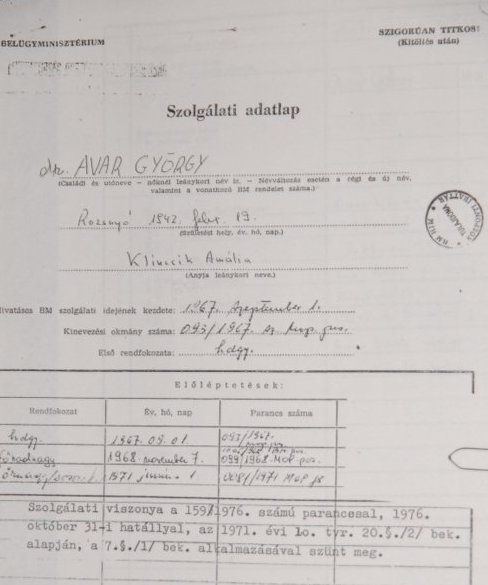 BELÜGYMINISZTÉRIUM
SZIGORÚAN TITKOS!
(Kitöltés után)
Szolgálati adatlap
dr. AVAR GYÖRGY
(Családi és utóneve — nőknél leánykori név is. — Névváltozás esetén a régi és új név,
valamint a vonatkozó BM rendelet száma.)
Rozsnyó 1942. febr. 19.
(Születési hely, év, hó, nap.)
Klincsik Amália
(Anyja leánykori neve.)
Hivatásos BM szolgálati idejének kezdete: 1967. szeptember 1.
Kinevezési okmány száma: 093/1967. sz. Mop. pcs.
Első rendfokozata: hdgy.
Előléptetések:
Rendfokozat Év, hó, nap Parancs száma
hdgy. 1967. 09. 01. 093/1967.
főhadnagy 1968 november 7. 099/1968.
1971 június 1 /1971
Szolgálati viszonya a 159/1976. számú paranccsal, 1976.
október 31-i hatállyal, az 1971. évi 10. tvr. 20.§./2/ bek.
alapján, a 7.§./1/ bek. alkalmazásával szünt meg.